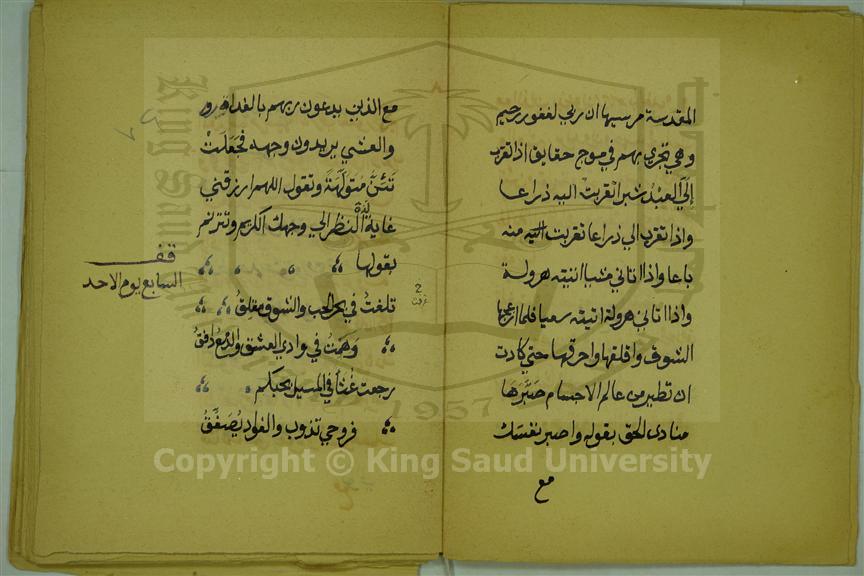 المقدسة مرسيها ان ربي لغفور رحيم
وهي تجري بهم في موج حقايق اذا تقرب
إليّ العبد شبرا تقربت اليه ذراعا
واذا تقرب الي ذراعا تقربت اليه منه
باعا واذا اتاني مشيا اتيته هرولة
واذا اتاني هرولة اتيته سعيا فلما ازعجها
الشوق واقلقها واحرقها حتي كادت
ان تطير من عالم الاجسام صَبَّرَهَا
منادى الحق بقوله واصبر نفسك
مع
مع الذين يدعون ربهم بالغداة
والعشي يريدون وجهه فَجَعَلَتْ
تَئنُّ مُتَوَلِّهَةً وتقول اللهم ارزقني
غاية لذة النظر الي وجهك الكريم وتترنم
بقولها
تلفتُ في بحر الحب والشوق مقلقُ
وَهَمتُ في وادي العشق والدمع دافقُ
رجعت غُثاً في المسيل بحبكم
فروحي تذوب والفواد يُصَفِّقُ
قف
السابع يوم الاحد
2
غرقت
King Saud University
1957
Copyright © King Saud University